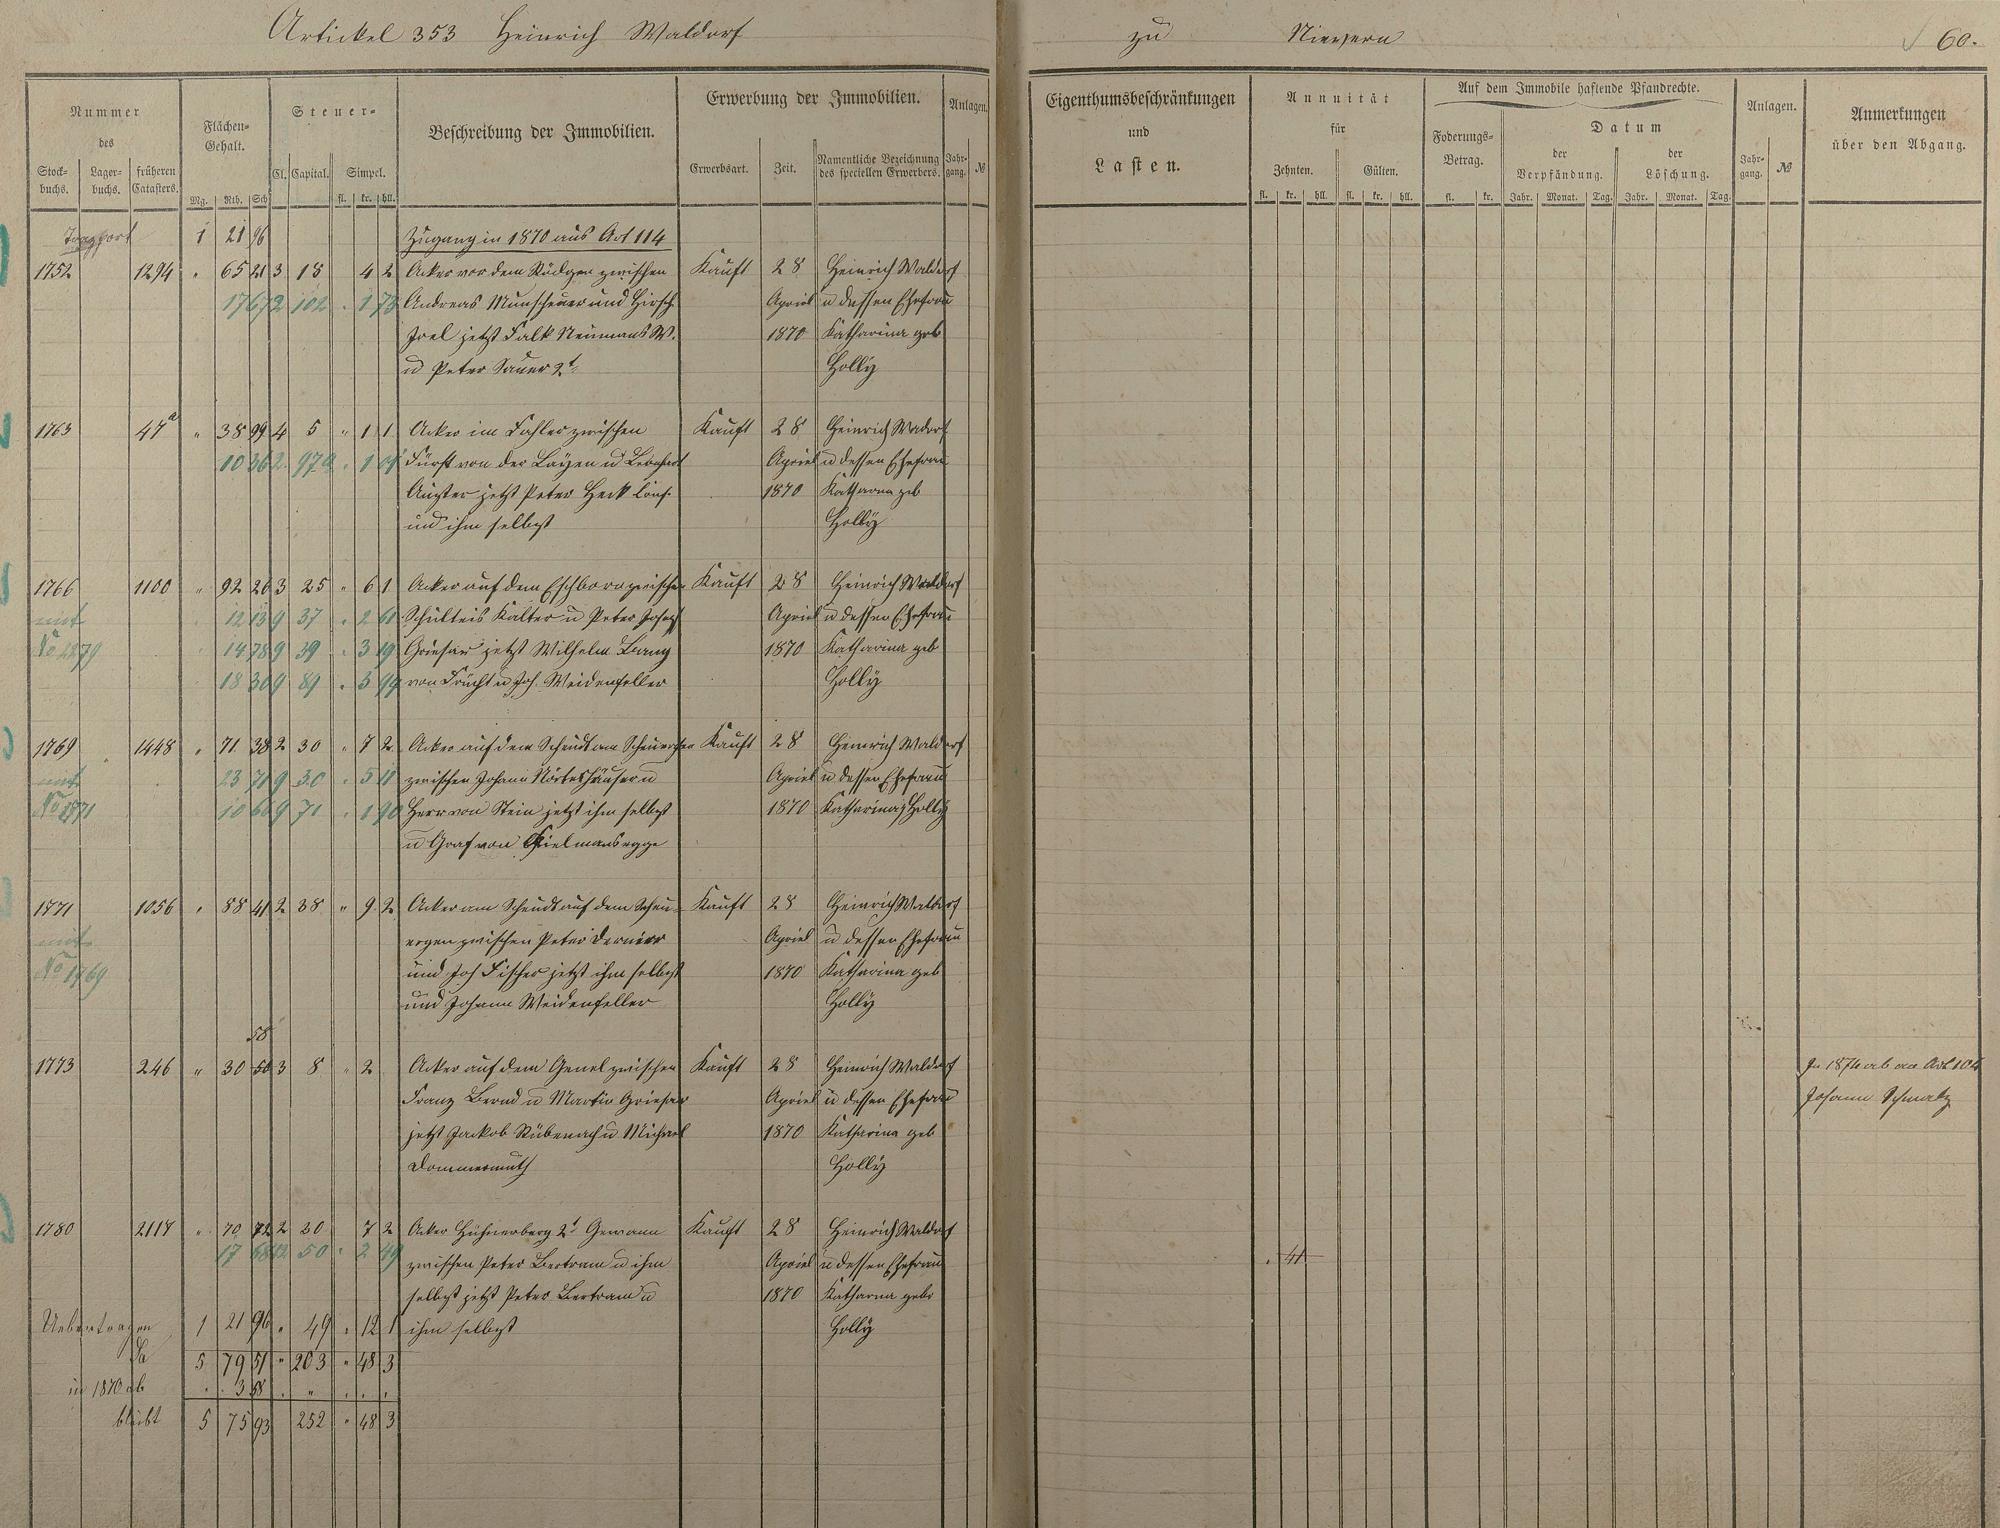 Artickel 353 Heinrich Waldorf zu Nievern 60.
Nummer des
Stock- buchs. Lager- buchs. früheren Catasters.
Flächen- Gehalt.
Mg. Rth. Sch
Steuer-
Cl. Capital. Simpel.
fl. kr. hll.
Beschreibung der Immobilien.
Erwerbung der Immobilien.
Erwerbsart. Zeit. Namentliche Bezeichnung des speciellen Erwerbers.
Anlagen.
Jahr- gang. №
Eigenthumsbeschränkungen
und
Lasten.
Annuität
für
Zehnten. Gülten.
fl. kr. hll. fl. kr. hll.
Auf dem Immobile haftende Pfandrechte.
Foderungs- Betrag.
fl. kr.
Datum
der Verpfändung. der Löschung.
Jahr. Monat. Tag. Jahr. Monat. Tag.
Anlagen.
Jahr- gang. №
Anmerkungen
über den Abgang.
1 21 96 Zugang in 1870 aus Art 114
1752 1294 " 65 21 3 18 4 2 Acker vor dem Rödgen zwischen Kauft 28 Heinrich Waldorf
17 67 2 102 . 1 73 Andreas Munscheuer und Hirsch Apriel u dessen Ehefrau
Joel jetzt Falk Neumans W. 1870 Katharina geb
u Peter Sauer 2t Holly
1763 47a " 38 99 4 5 " 1 1 Acker im Fahler zwischen Kauft 28 Heinrich Wadorf
10 36 2 97 Fürst von der Layen u Apriel u dessen Ehefrau
jetzt Peter Heck 1870 Katharna geb
und ihm selbst Holly
1766 1100 " 92 26 3 25 " 6 1 Acker auf dem Eschborn zwischen Kauft 28 Heinrich Waldorf
mit 12 13 9 37 . 2 61 Schulteis Kalter u Peter Josef Apriel u dessen Ehefrau
14 78 9 39 . 3 19 Griesar jetzt Wilhelm Bang 1870 Katharina geb
18 30 9 89 . 3 99 von Frücht u Joh. Weidenfeller Holly
1769 1448 " 71 38 2 30 " 7 2 Acker auf dem Scheudt am Kauft 28 Heinrich Waldorf
mit 23 71 9 30 . 5 11 zwischen Johann Nörtershäuser u Apriel u dessen Ehefrau
No 1771 10 66 9 71 . 1 90 Herr von Stein jetzt ihm selbst 1870 Katharina Holly
u Graf von Kielmansegge
1771 1056 " 88 41 2 38 " 9 2 Acker am Scheudt auf dem Scheu- Kauft 28 Heinrich Waldorf
mit zwischen Peter Apriel u dessen Ehefrau
No 1769 und Joh Fischer jetzt ihm selbst 1870 Katharina geb
und Johann Weidenfeller Holly
58
1773 246 " 30 50 3 8 " 2 Acker auf dem zwischen Kauft 28 Heinrich Waldorf In 1874 ab an Art 104
Franz Bernd u Martin Griesar Apriel u dessen Ehefrau Johann Schmalz
jetzt Jackob Rübenach u Michael 1870 Katharina geb
Dommermuth Holly
1780 2118 " 70 72 2 30 7 2 Acker Hühnerberg 2t Gewann Kauft 28 Heinrich Waldorf
17 68 2 50 . 2 49 zwischen Peter Bertram u ihm Apriel u dessen Ehefrau . 41
selbst jetzt Peter Bertram u 1870 Katharna gebr
Uebertragen 1 21 96 " 49 " 12 1 ihm selbst Holly
Sa 5 79 51 " 203 " 48 3
in 1870 ab . . 3 58 . " . . .
bleibt 5 75 93 252 " 48 3